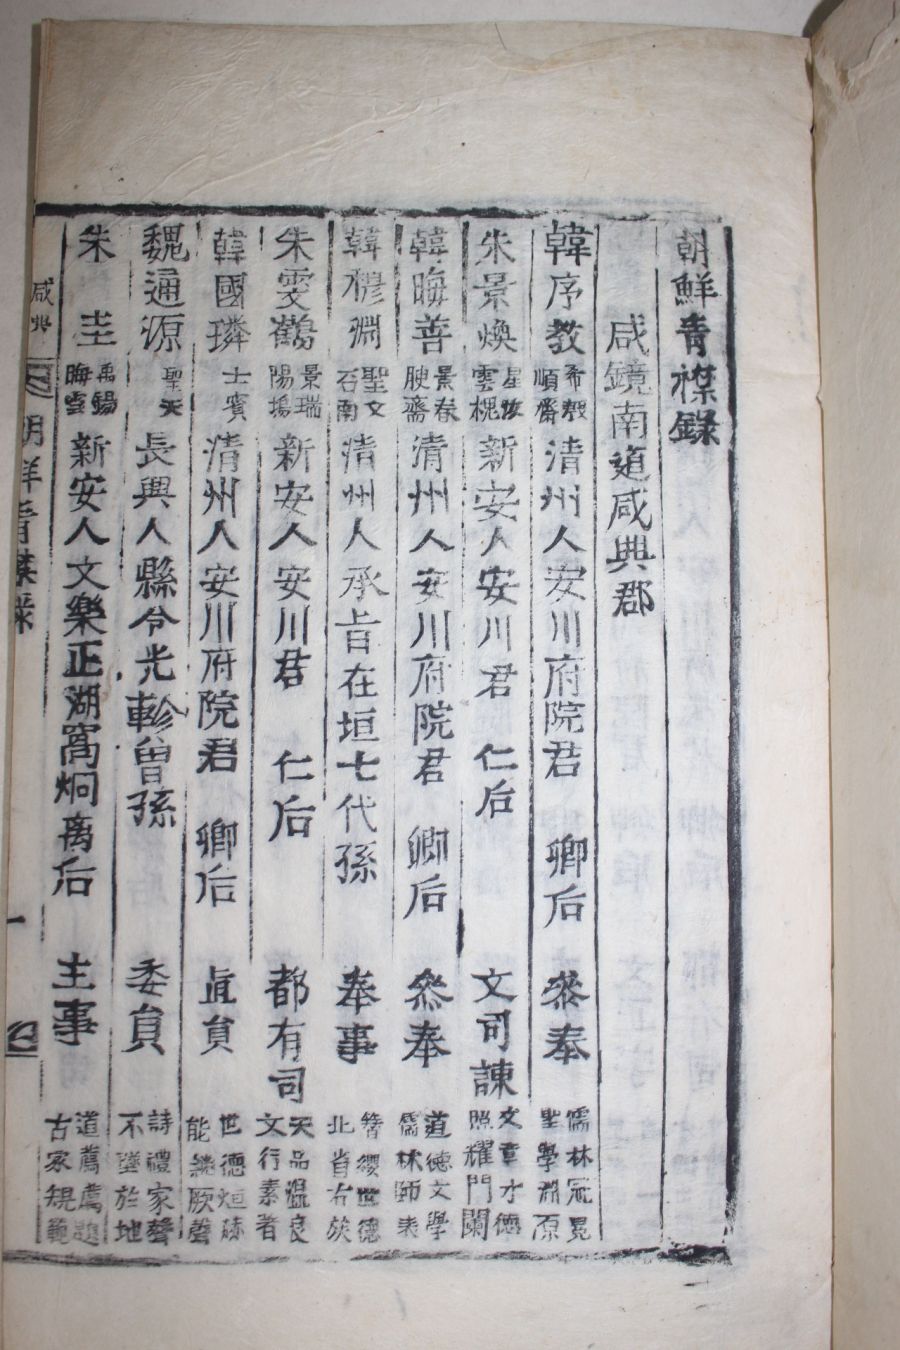 朝鮮青襟錄
咸鏡南道咸興郡
韓序教 希殷 順齋 清州人安川府院君 卿后 叅奉 儒林冠冕 聖學淵源
朱景煥 星彼 雲槐 新安人安川君 仁后 文司諫 文章才德 照耀門闌
韓晦善 景春 腴齋 清州人安川府院君 卿后 叅奉 道德文學 儒林師表
韓穆淵 聖文 石南 清州人承旨在垣七代孫 奉事 簪纓世德 北省右族
朱雯鶴 景瑞 陽塢 新安人安川君 仁后 都有司 天品溫良 文行素著
韓國璘 士賓 清州人安川府院君 卿后 直員 世德烜赫 能繩厥聲
魏通源 聖天 長興人縣令光軫曾孫 委員 詩禮家聲 不墜於地
朱 圭 禹錫 晦雲 新安人文樂正湖窩炯离后 主事 道薦薦題 古家規範
咸興 朝鮮青襟錄 一